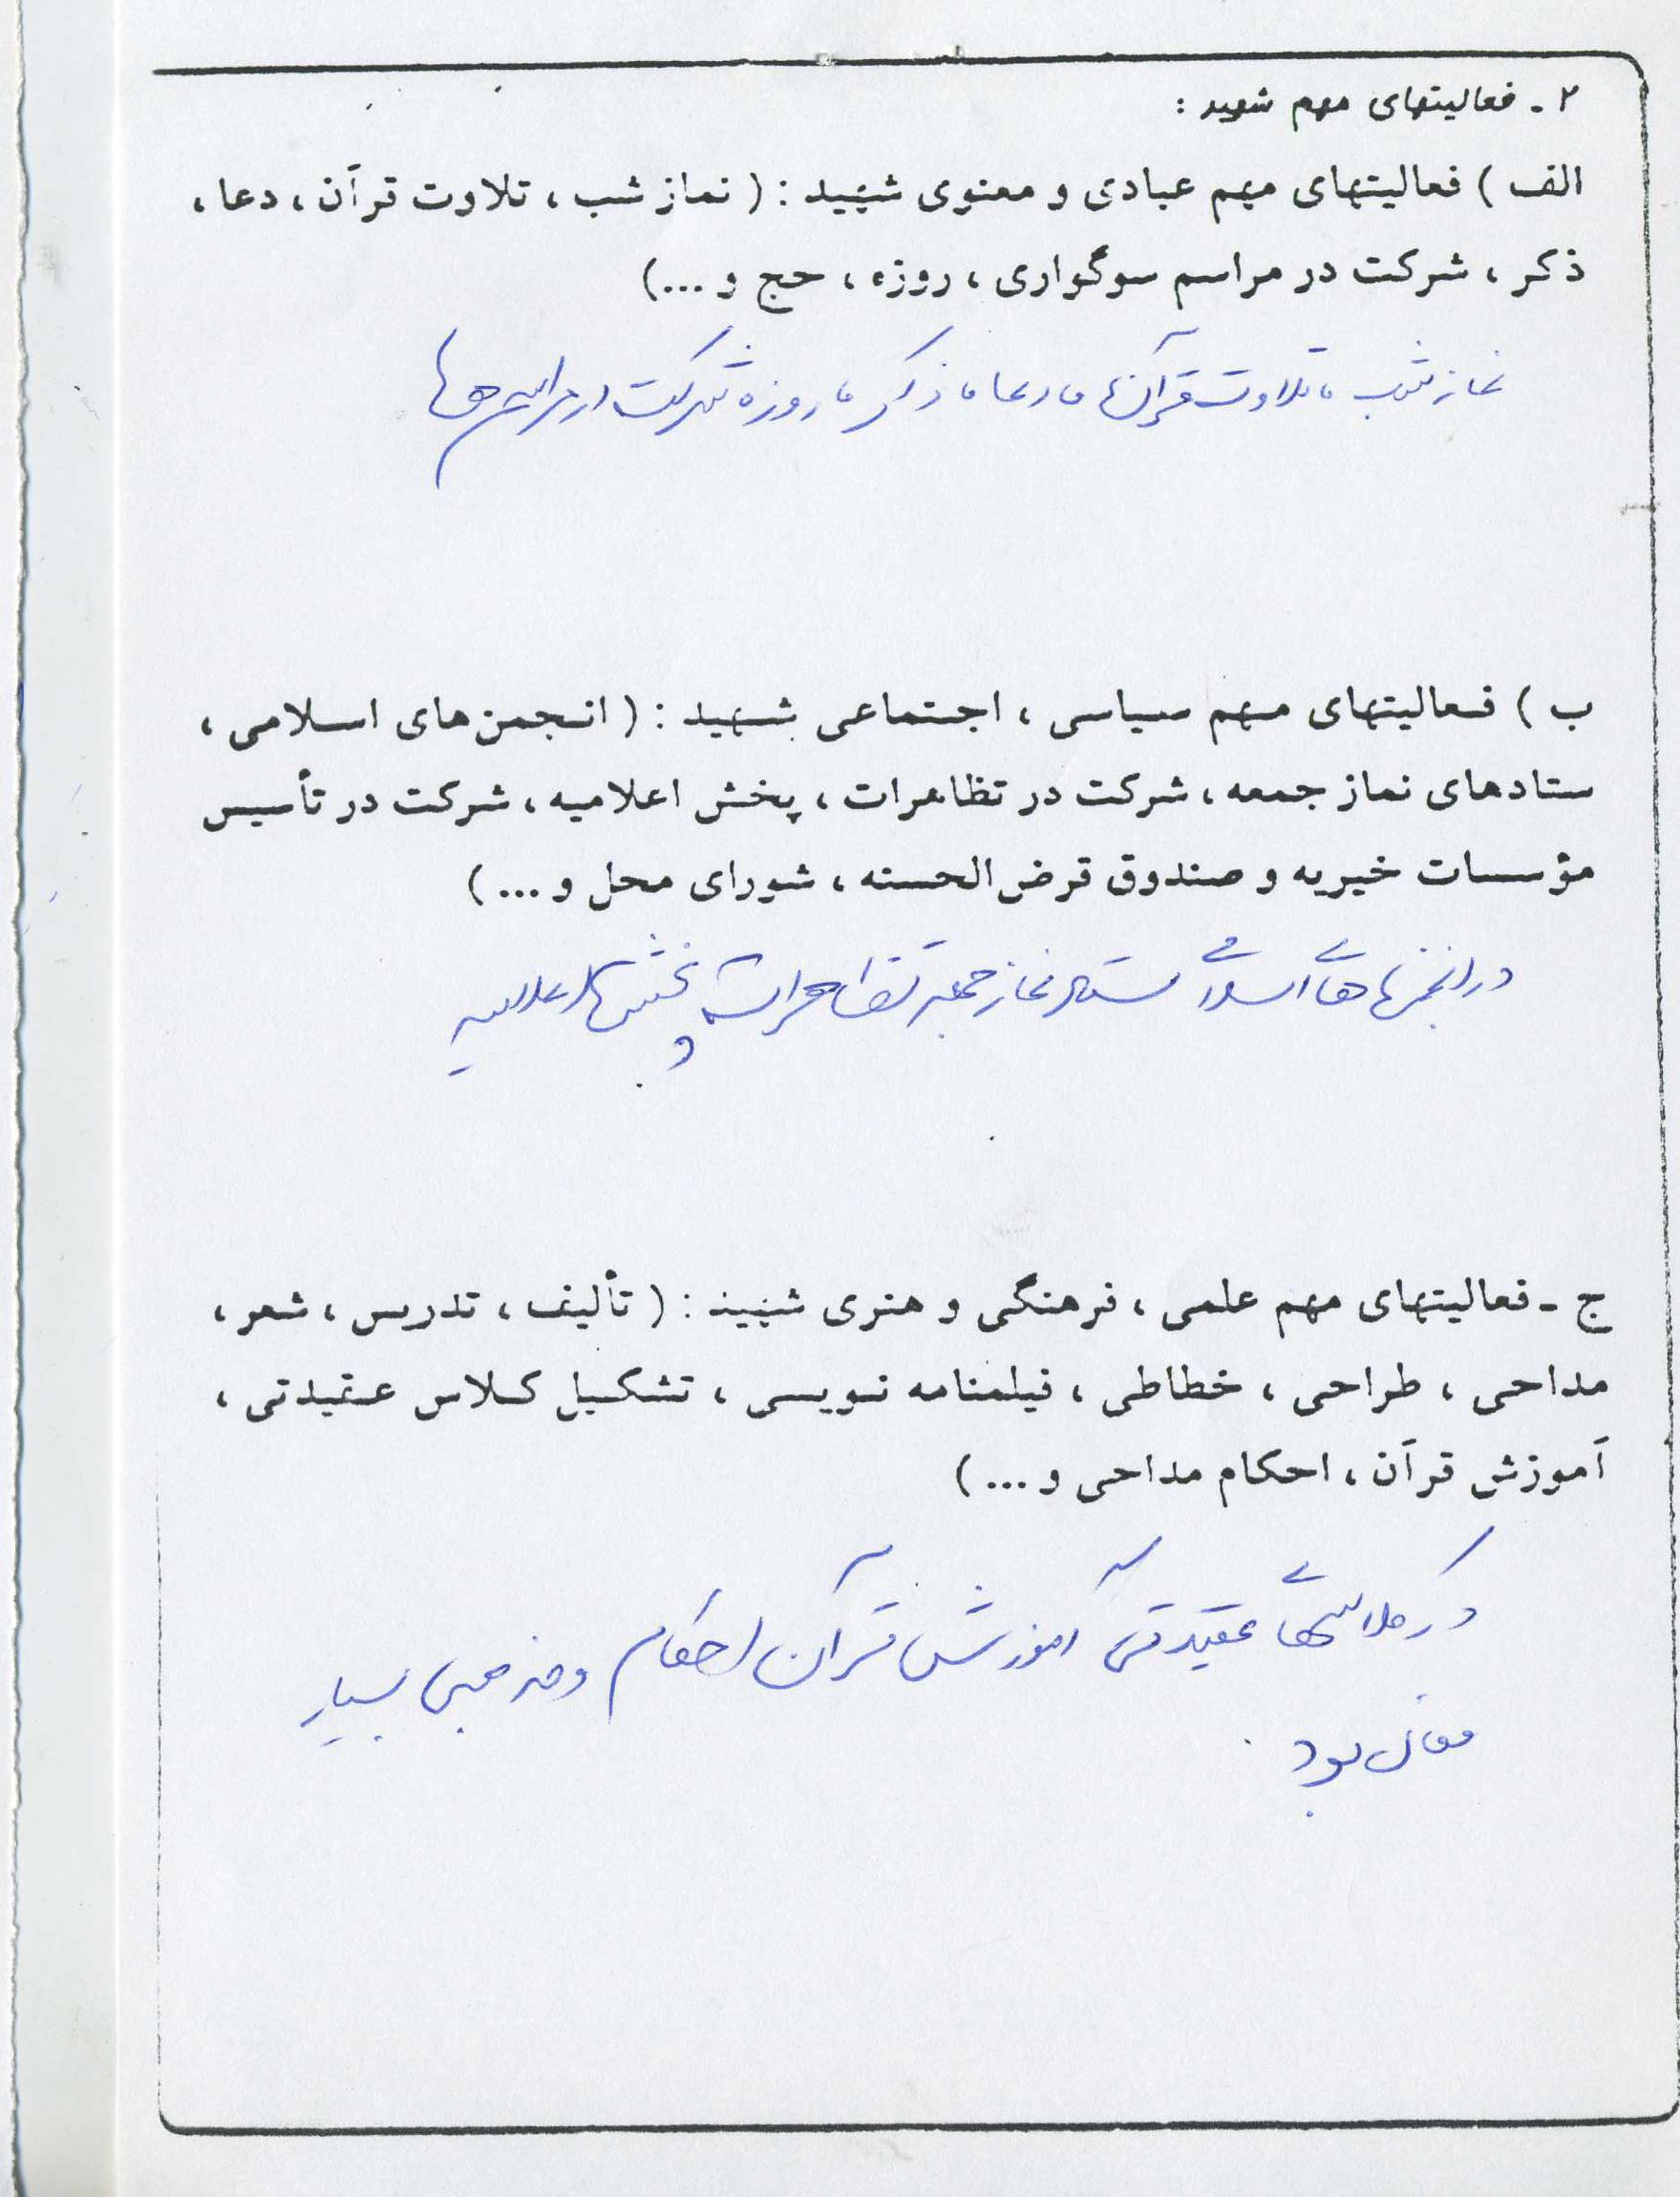 ۲ - فعالیتهای مهم شهید :
الف ) فعالیتهای مهم عبادی و معنوی شهید : ( نماز شب ، تلاوت قرآن ، دعا ،
ذکر ، شرکت در مراسم سوگواری ، روزه ، حج و ...)
نماز شب ، تلاوت قرآن ، دعا ، ذکر ، روزه شرکت در مراسم ها
ب ) فعالیتهای مهم سیاسی ، اجتماعی شهید : ( انجمن های اسلامی ،
ستادهای نماز جمعه ، شرکت در تظاهرات ، پخش اعلامیه ، شرکت در تأسیس
مؤسسات خیریه و صندوق قرض الحسنه ، شورای محل و ... )
در انجمن های اسلامی ستاد نماز جمعه تظاهرات و پخش اعلامیه
ج - فعالیتهای مهم علمی ، فرهنگی و هنری شهید : ( تألیف ، تدریس ، شعر ،
مداحی ، طراحی ، خطاطی ، فیلمنامه نویسی ، تشکیل کلاس عقیدتی ،
آموزش قرآن ، احکام مداحی و ... )
در کلاسهای عقیدتی آموزش قرآن احکام و مذهبی بسیار
فعال بود